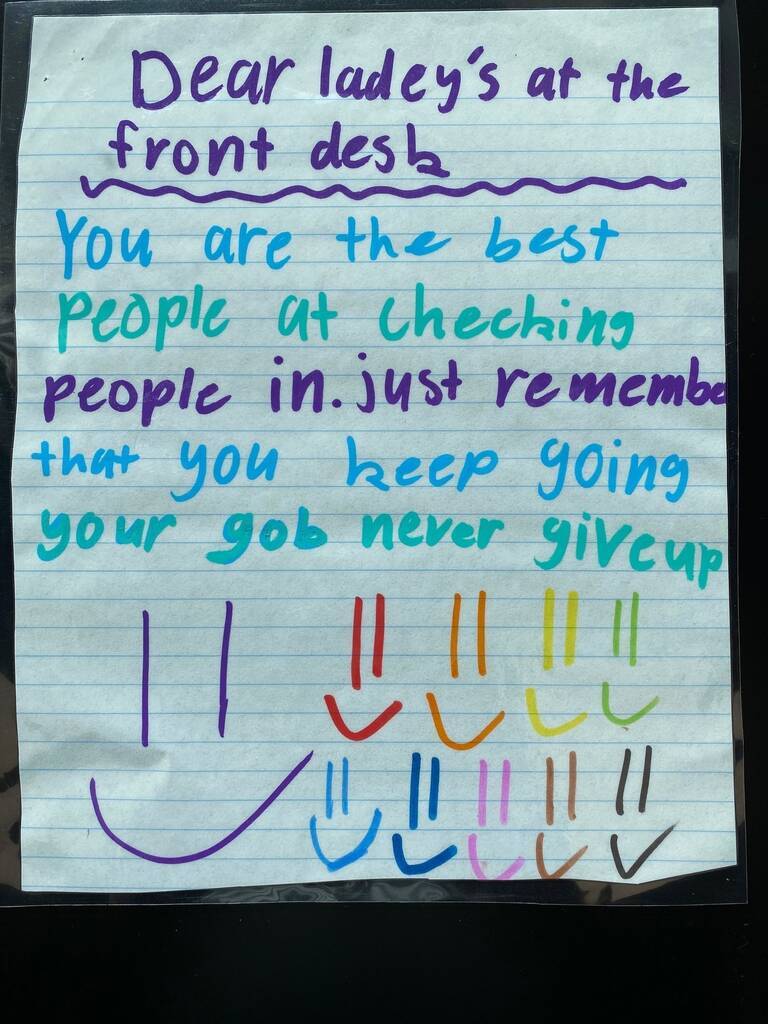 Dear ladey's at the
front desk
You are the best
people at checking
people in. just remembe
that you keep going
your gob never give up